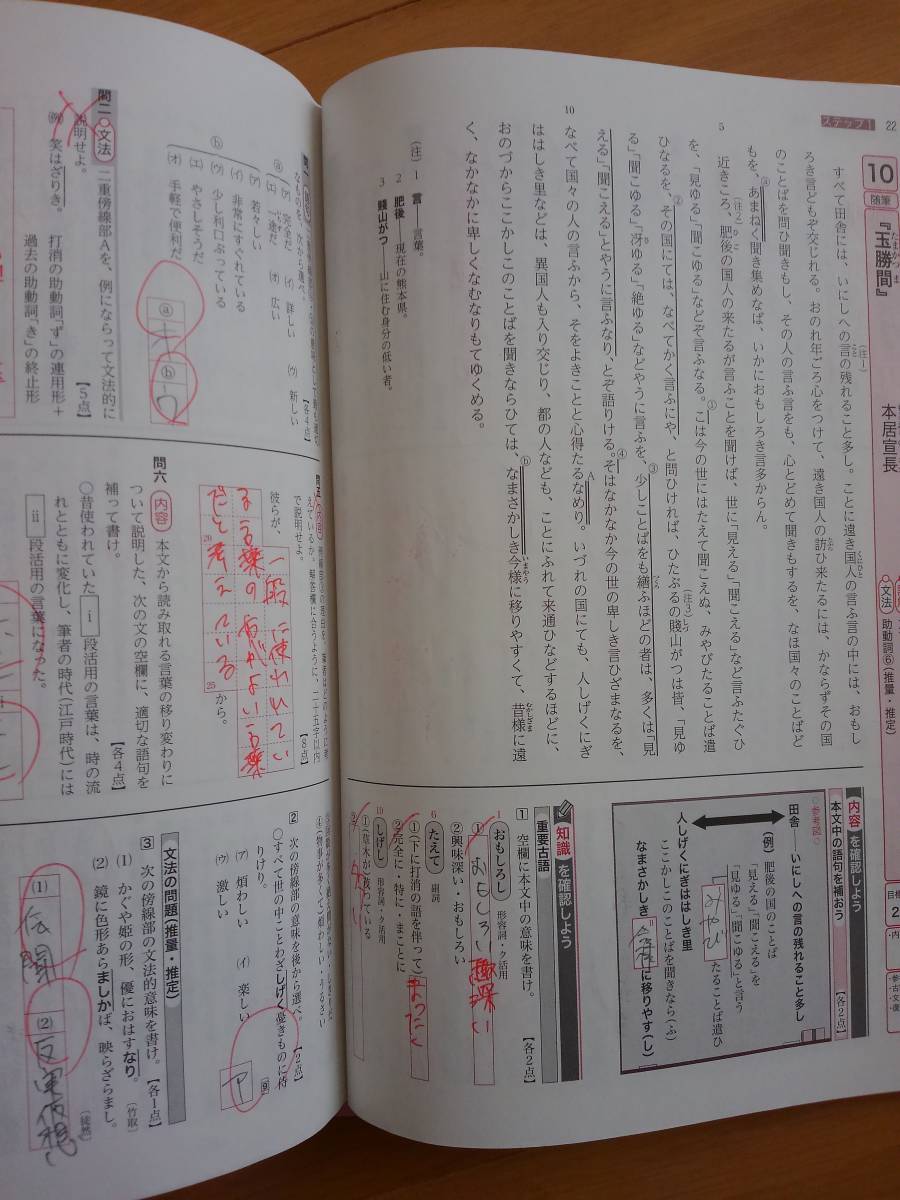 ステップ1 22
10
随筆
『玉勝間』
たまかつま
本居宣長
文法 助動詞⑥(推量・推定)
すべて田舎には、いにしへの言の残れること多し。ことに遠き国人の言ふ言の中には、おもし
ろき言どもぞ交じれる。おのれ年ごろ心をつけて、遠き国人の訪ひ来たるには、かならずその国
のことばを問ひ聞きもし、その人の言ふ言をも、心とどめて聞きもするを、なほ国々のことばど
もを、あまねく聞き集めなば、いかにおもしろき言多からん。
近きころ、肥後の国人の来たるが言ふことを聞けば、世に「見える」「聞こえる」など言ふたぐひ
を、「見ゆる」「聞こゆる」などぞ言ふなる。こは今の世にはたえて聞こえぬ、みやびたることば遣
ひなるを、その国にては、なべてかく言ふにや、と問ひければ、ひたぶるの賤山がつは皆、「見ゆ
る」「聞こゆる」「冴ゆる」「絶ゆる」などやうに言ふを、少しことばをも繕ふほどの者は、多くは「見
える」「聞こえる」とやうに言ふなり、とぞ語りける。そはなかなか今の世の卑しき言ひざまなるを、
なべて国々の人の言ふから、そをよきことと心得たるなめり。いづれの国にても、人しげくにぎ
ははしき里などは、異国人も入り交じり、都の人なども、ことにふれて来通ひなどするほどに、
おのづからここかしこのことばを聞きならひては、なまさかしき今様に移りやすくて、昔様に遠
く、なかなかに卑しくなむなりもてゆくめる。
(注) 1 言――言葉。
2 肥後――現在の熊本県。
3 賤山がつ――山に住む身分の低い者。
内容を確認しよう
本文中の語句を補おう 【各2点】
○参考図○
田舎――いにしへの言の残れること多し
(例) 肥後の国のことば
「見える」「聞こえる」を
「見ゆる」「聞こゆる」と言う
みやびたることば遣ひ
人しげくにぎははしき里
ここかしこのことばを聞きなら(ふ)
なまさかしき今様に移りやす(し)
知識を確認しよう
重要古語
1 空欄に本文中の意味を書け。 【各2点】
1 おもしろし 形容詞・ク活用
① 趣深い
②興味深い・おもしろい
6 たえて 副詞
①(下に打消の語を伴って)まったく
②完全に・特に・まことに
10 しげし 形容詞・ク活用
①(草木が)茂っている
ⓐ
(ア) 完全だ (イ) 詳しい (ウ) 新しい
(エ) 一途だ (オ) 広い
ⓑ
(ア) 若々しい
(イ) 非常にすぐれている
(ウ) 少し利口ぶっている
(エ) やさしそうだ
(オ) 手軽で便利だ
ⓐ オ ⓑ ウ
問二 文法 二重傍線部Aを、例にならって文法的に
説明せよ。 【5点】
(例) 笑はざりき。 打消の助動詞「ず」の連用形+
過去の助動詞「き」の終止形
で説明せよ。 【8点】
彼らが、
一般に使われてい
る言葉の方がよい言葉
だと考えている
から。
20
25
問六 内容 本文から読み取れる言葉の移り変わりに
ついて説明した、次の文の空欄に、適切な語句を
補って書け。 【各4点】
○昔使われていた ⅰ 段活用の言葉は、時の流
れとともに変化し、筆者の時代(江戸時代)には
ⅱ 段活用の言葉になった。
2 次の傍線部の意味を後から選べ。 【2点】
○すべて世の中のことわざしげく憂きものに侍
りけり。
(ア) 煩わしい (イ) 楽しい
(ウ) 激しい
ア
文法の問題(推量・推定)
3 次の傍線部の文法的意味を書け。 【各1点】
(1) かぐや姫の形、優におはすなり。 (竹取)
(2) 鏡に色形あらましかば、映らざらまし。 (徒然)
(1) 伝聞
(2) 反実仮想